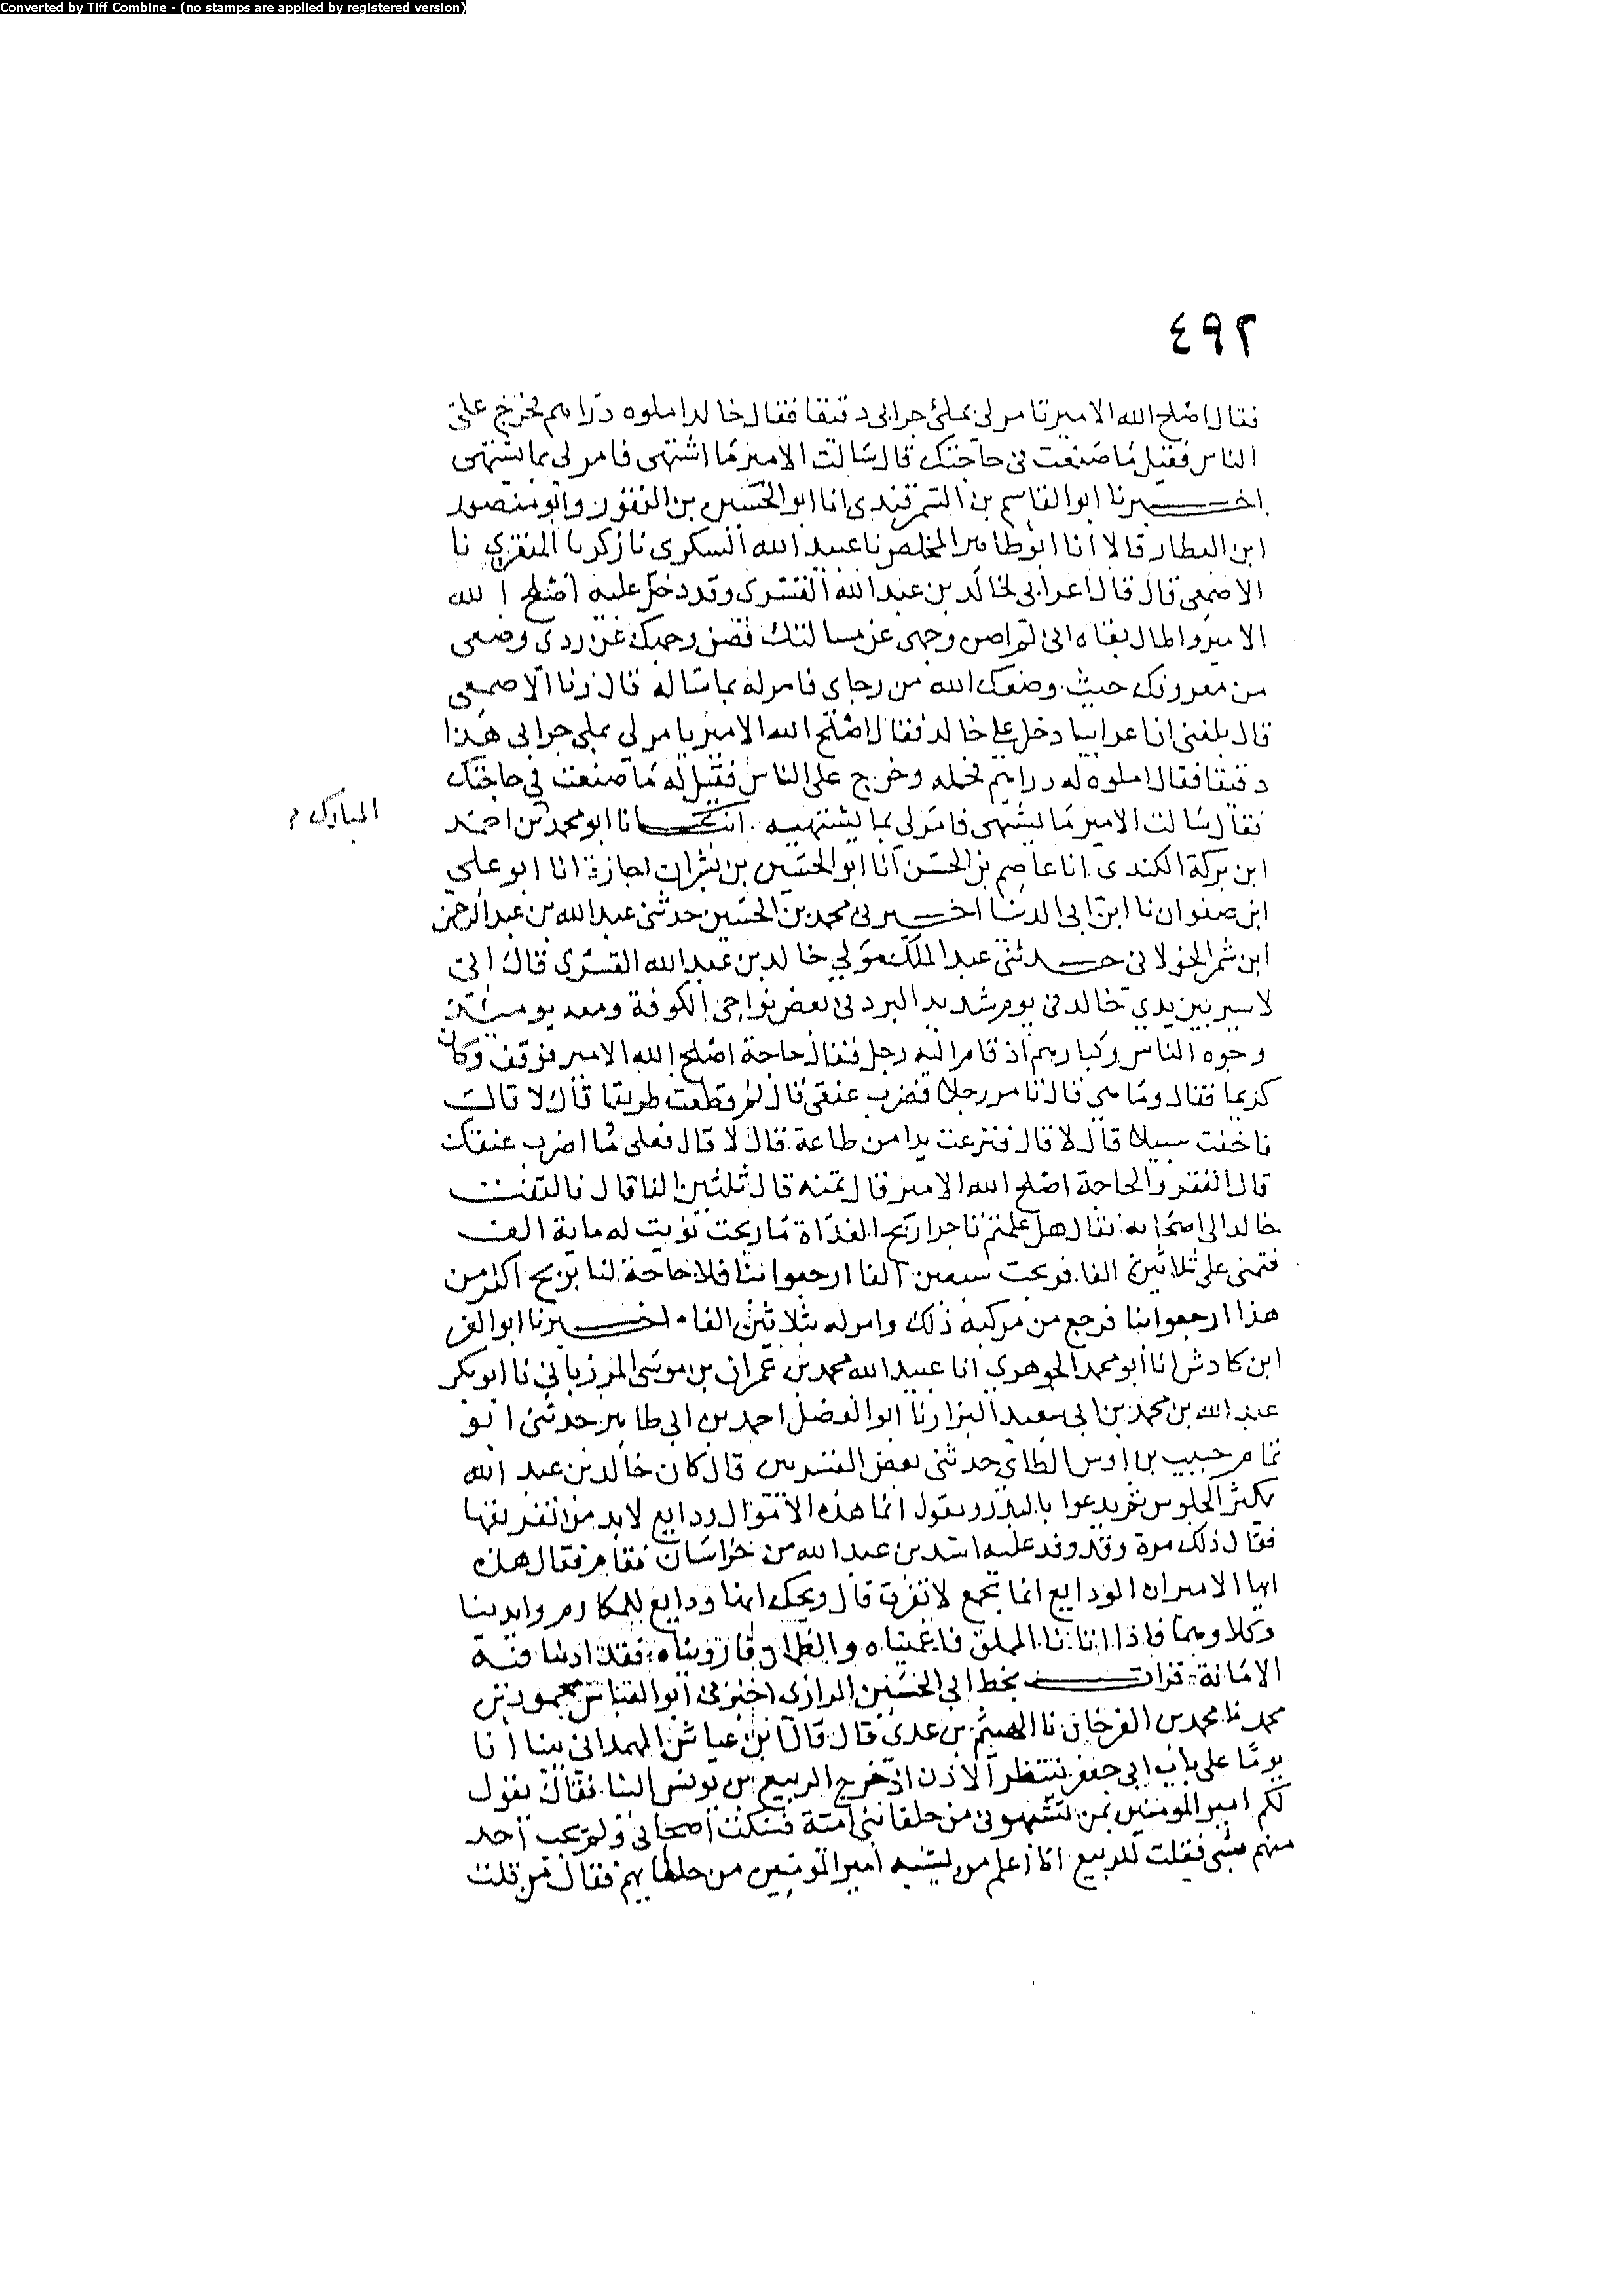 Converted by Tiff Combine - (no stamps are applied by registered version)
٤٩٢
فقال اصلح الله الامير تامر لي بملئ جرابي دقيقا فقال خالد املوه دراهم فخرج على
الناس فقيل ما صنعت في حاجتك قال سالت الامير ما اشتهى فامر لي بما يشتهى
اخبرنا ابو القاسم بن السمرقندى انا ابو الحسين بن النقور وابو منصور
ابن العطار قالا انا ابو طاهر المخلص نا عبيد الله السكرى نا زكريا المنقري نا
الاصمعى قال قال اعرابي لخالد بن عبد الله القسري وقد دخل عليه اصلح الله
الامير واطال بقاه انى لم اصن وجهى عن مسالتك فصن وجهك عن ردى وضعنى
من معروفك حيث وضعك الله من رجاى فامر له بما ساله قال ونا الاصمعى
قال بلغنى ان اعرابيا دخل على خالد فقال اصلح الله الامير يامر لي بملى جرابى هذا
دقيقا فقال املوه له دراهم فحمله وخرج على الناس فقيل له ما صنعت في حاجتك
فقال سالت الامير ما يشتهى فامر لي بما يشتهيه . انبانا ابو محمد بن احمد
المبارك م
ابن بركة الكندى انا عاصم بن الحسن انا ابو الحسين بن بشران اجازة انا ابو علي
ابن صفوان نا ابن ابى الدنيا اخبرنى محمد بن الحسين حدثنى عبد الله بن عبد الرحمن
ابن شمر الخولانى حدثنى عبد الملك مولي خالد بن عبد الله القسرى قال انى
لاسير بين يدي خالد في يوم شديد البرد فى بعض نواحى الكوفة ومعه يومئذ
وجوه الناس وكبارهم اذ قام اليه رجل فقال حاجة اصلح الله الامير فوقف وكان
كريما فقال وما هى قال تامر رجلا فضرب عنقى قال لم قطعت طريقا قال لا قال
فاخفت سبيلا قال لا قال فنزعت يدا من طاعة قال لا قال فعلى ما اضرب عنقك
قال الفقر والحاجة اصلح الله الامير قال تمنه قال ثلثين الفا قال فالتفت
خالد الى اصحابه فقال هل علمتم تاجرا ربح الغداة ما ربحت نويت له ماية الف
فتمنى على ثلاثين الفا فربحت سبعين الفا ارجعوا بنا فلا حاجة لنا بربح اكثر من
هذا ارجعوا بنا فرجع من مركبه ذلك وامر له بثلاثين الفا . اخبرنا ابو العز
ابن كادش انا ابو محمد الجوهري انا عبيد الله محمد بن عمران بن موسى المرزباني نا ابو بكر
عبد الله بن محمد بن ابى سعيد البزار نا ابو الفضل احمد بن ابى طاهر حدثنى ابو
تمام حبيب بن اوس الطاي حدثنى بعض القسريين قال كان خالد بن عبد الله
يكثر الجلوس ثم يدعوا بالبدر ويقول انما هذه الاموال ودايع لا بد من تفريقها
فقال ذلك مرة وقد وفد عليه اسد بن عبد الله من خراسان فقام فقال هذه
ايها الامير ان الودايع انما تجمع لا تفرق قال ويحك انها ودايع للمكارم وايدينا
وكلاوها فاذا اتانا المملق فاغنيناه والظمآن فارويناه فقد ادينا فيه
الامانة . قرات بخط ابي الحسين الرازى اخبرنى ابو العباس محمود بن
محمد نا محمد بن الفرخان نا الهيثم بن عدى قال قال ابن عياش الهمدانى بينا انا
يوما على باب ابى جعفر ننتظر الاذن اذ خرج الربيع بن يونس الينا فقال يقول
لكم امير المومنين بمن تشبهونى من خلفا بنى امية فسكت اصحابى ولم يجب احد
منهم بشى فقلت للربيع انا اعلم من يشبه امير المومنين من خلفايهم فقال من قلت